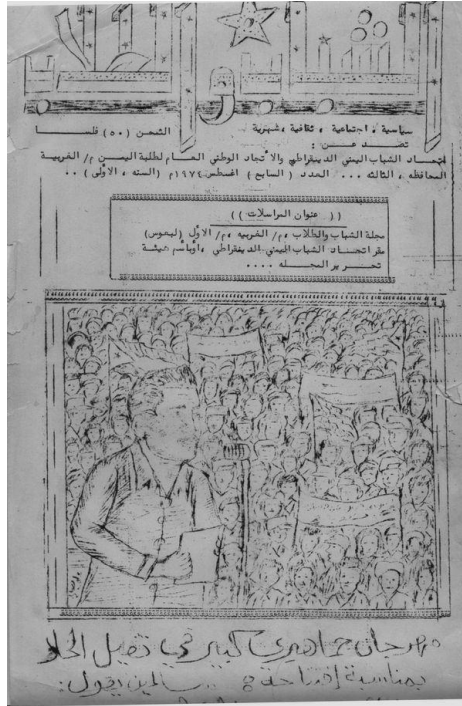 سياسية ، اجتماعية ، ثقافية ، شهرية الثمن (٥٠) فلسا
تصدر عن :
اتحاد الشباب اليمني الديمقراطي والاتحاد الوطني العام لطلبة اليمن م/ الغربية
المحافظه ، الثالثه ... العدد (السابع) اغسطس ١٩٧٤م (السنه ، الأولى) ..
(( عنوان المراسلات ))
مجلة الشباب والطلاب ، م/ الغربيه ، م/ الأول (لبعوس)
مقر اتحاد الشباب اليمني الديمقراطي ، أوباسم هيئة
تحرير المجله ....
مهرجان جماهيري كبير في نقيل الخلا
بمناسبة افتتاحة سالمين يقول :